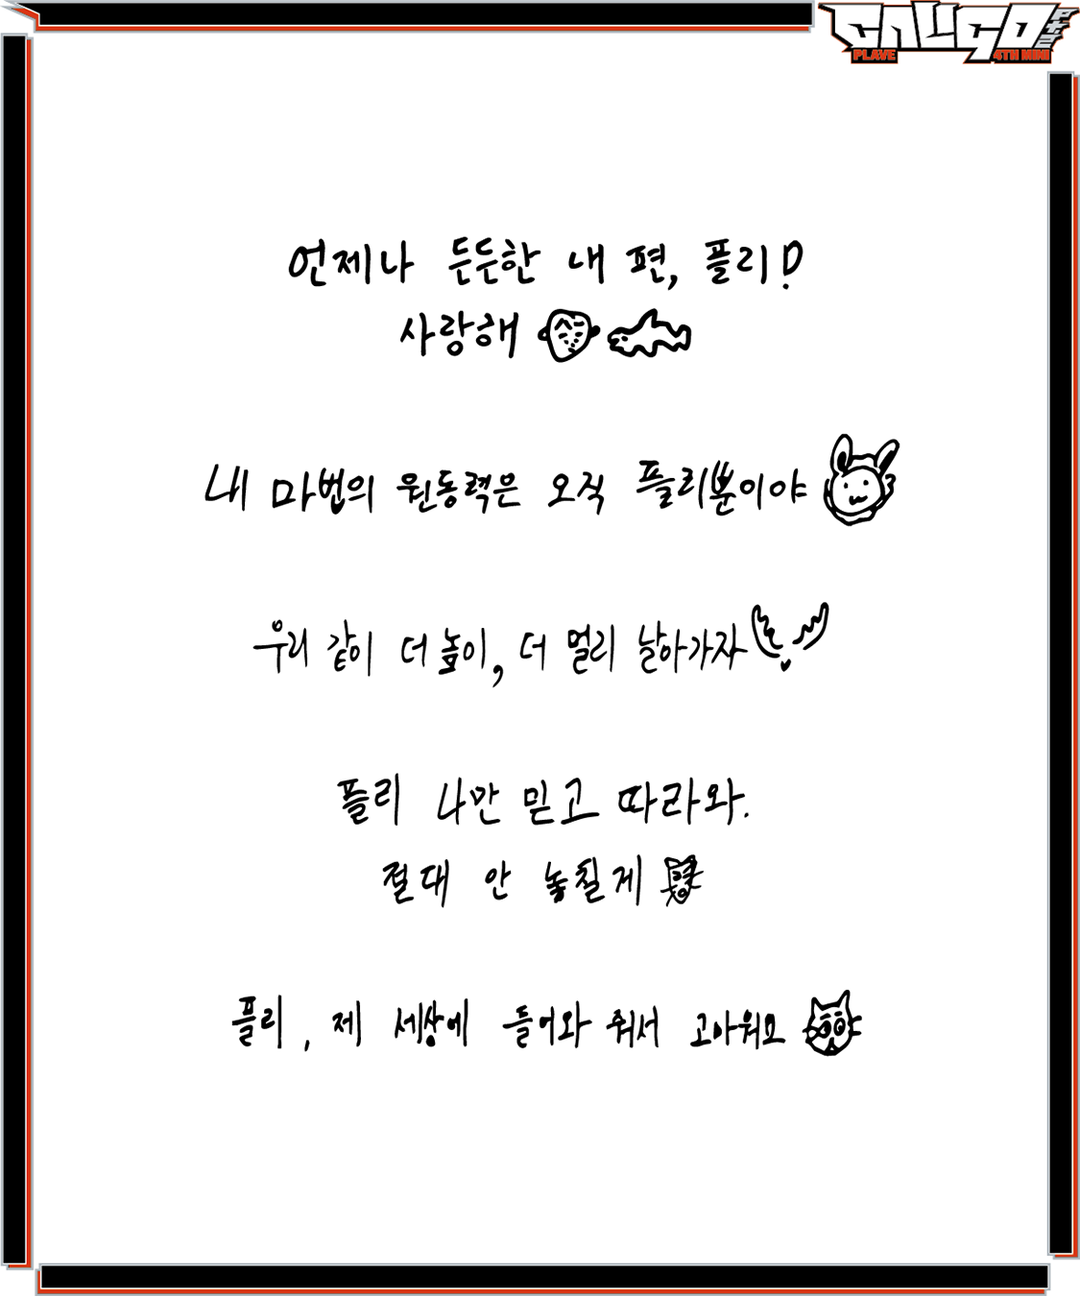 CALIGO Pt.2
PLAVE 4TH MINI
언제나 든든한 내 편, 플리!
사랑해
내 마법의 원동력은 오직 플리뿐이야
우리 같이 더 높이, 더 멀리 날아가자
플리 나만 믿고 따라와.
절대 안 놓칠게
플리, 제 세상에 들어와 줘서 고마워요